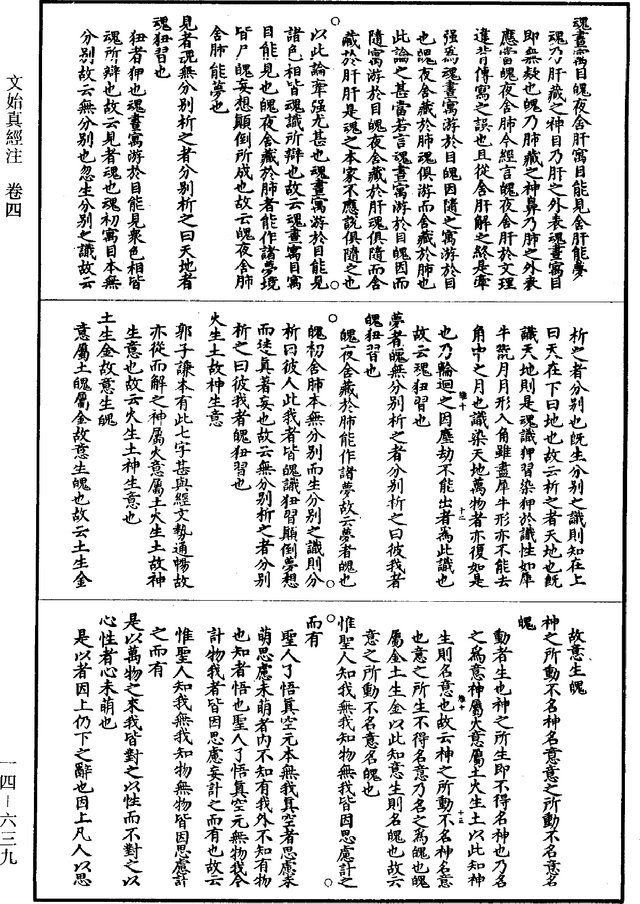 文始真經注　卷四
一四—六三九
魂晝寓目魄夜舍肝寓目能見舍肝能夢
魂乃肝藏之神目乃肝之外表魂晝寓目
即無疑也魄乃肺藏之神鼻乃肺之外表
應當魄夜舍肺今經言魄夜舍肝於文理
違背傳寫之誤也且從舍肝解之終是牽
强為魂晝寓游於目魄因隨之寓游於目
也魄夜舍藏於肺魂俱游而舍藏於肺也
此論之甚當若言魂晝寓游於目魄因而
隨寓游於目魄夜舍藏於肝魂俱隨而舍
藏於肝肝是魂之本家不應說俱隨之也
以此論牽强尤甚也魂晝寓游於目能見
諸色相皆魂識所辯也故云魂晝寓目寓
目能見也魄夜舍藏於肺者能作諸夢境
皆尸魄妄想顛倒所成也故云魄夜舍肺
舍肺能夢也
見者混無分別析之者分別析之曰天地者
魂狃習也
狃者狎也魂晝寓游於目能見衆色相皆
魂所辯也故云見者魂也魂初寓目本無
分別故云無分別也忽生分別之識故云
析之者分別也既生分別之識則知在上
曰天在下曰地也故云析之者天地也既
識天地則是魂識狎習染狎於識性如犀
牛翫月月形入角雖盡犀牛形亦不能去
角中之月也識染天地萬物者亦復如是
也乃輪迴之因塵劫不能出者為此識也
故云魂狃習也
夢者魄無分別析之者分別析之曰彼我者
魄狃習也
魄夜舍藏於肺能作諸夢故云夢者魄也
魄初舍肺本無分別而生分別之識則分
析曰彼人此我者皆魄識狃習顛倒夢想
而迷真著妄也故云無分別析之者分別
析之曰彼我者魄狃習也
火生土故神生意
郭子謙本有此七字甚與經文勢通暢故
亦從而解之神屬火意屬土火生土故神
生意也故云火生土神生意也
土生金故意生魄
意屬土魄屬金故意生魄也故云土生金
故意生魄
神之所動不名神名意意之所動不名意名
魄
動者生也神之所生即不得名神也乃名
之為意神屬火意屬土火生土以此知神
生則名意也故云神之所動不名神名意
也意之所生不得名意乃名之為魄也魄
屬金土生金以此知意生則名魄也故云
意之所動不名意名魄也
惟聖人知我無我知物無物皆因思慮計之
而有
聖人了悟真空元本無我真空者思慮未
萌思慮未萌者內不知有我外不知有物
也知者悟也聖人了悟真空元無物我今
計物我者皆因思慮妄計之而有也故云
惟聖人知我無我知物無物皆因思慮計
之而有
是以萬物之來我皆對之以性而不對之以
心性者心未萌也
是以者因上仍下之辭也因上凡人以思